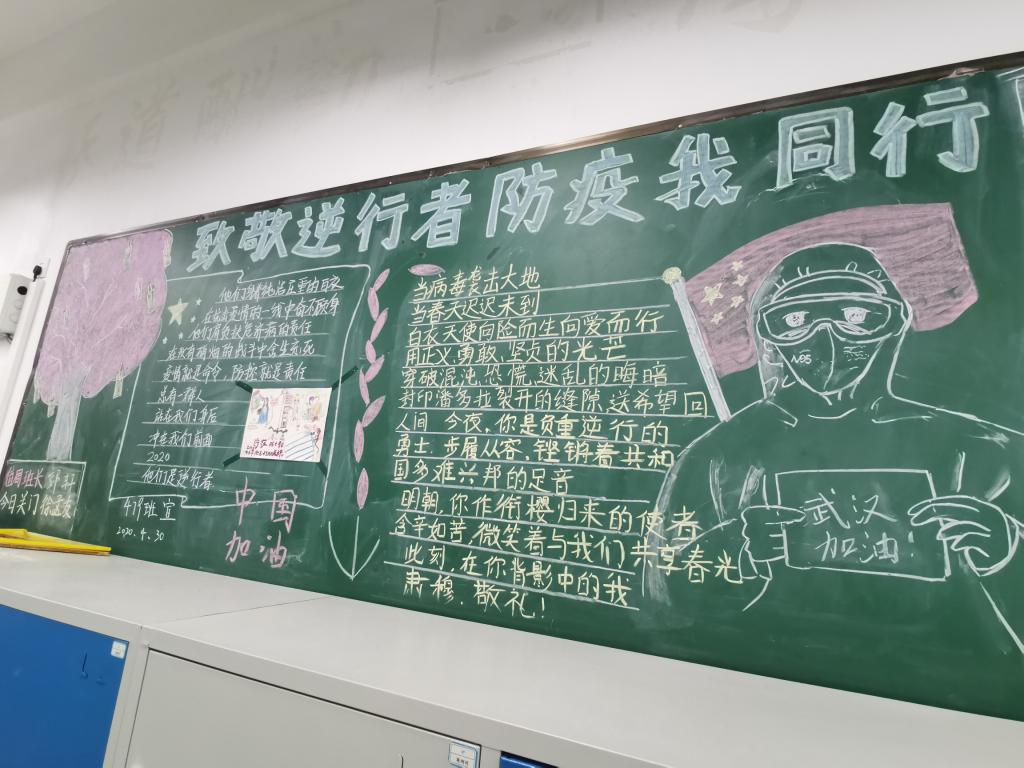 致敬逆行者防疫我同行
在战疫情的一线中奋不顾身
他们肩负状危济病的责任
疫情就是命令,防控就是责任
总有一群人
站在我们身后
冲在我们前面
2020
他们是逆行者
419班宣
2020.4.30
中国
加油
当病毒袭击大地
当春天迟迟未到
白衣天使向险而生向爱而行
用正义、勇敢、坚贞的光芒
穿破混沌、恐慌、迷乱的晦暗
封印潘多拉裂开的缝隙,送希望回
人间 今夜,你是负重逆行的
勇士,步履从容,铿锵着共和
国多难兴邦的足音
明朝,你作衔樱归来的使者
含辛如苦,微笑着与我们共享春光
此刻,在你背影中的我
肃穆,敬礼!
N95
武汉
加油!
值周班长
今日关门